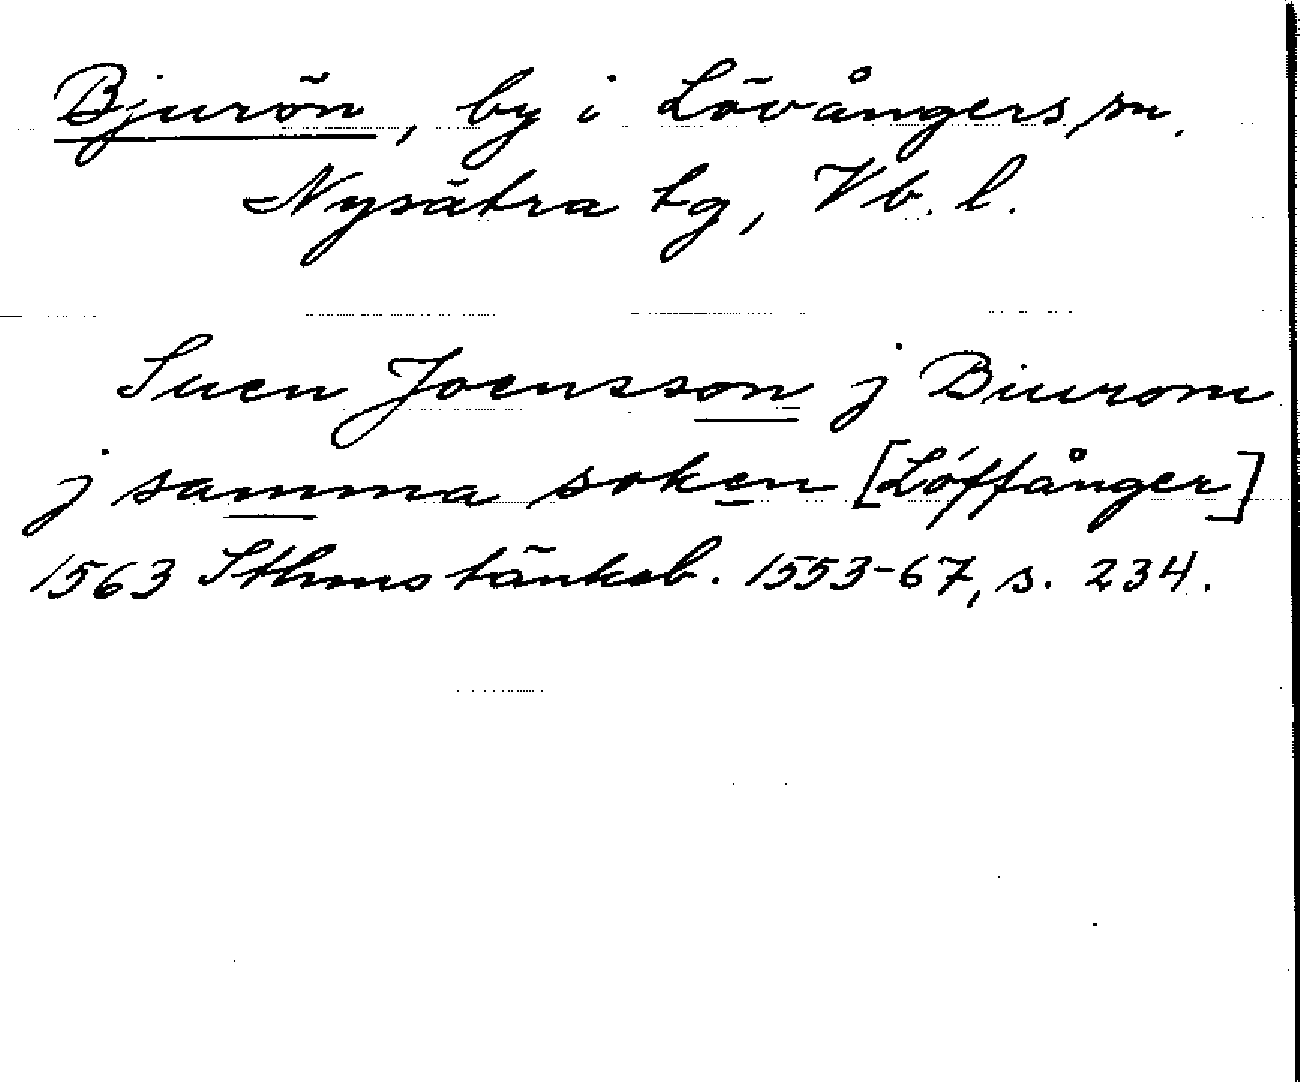 Bjurön, by i Lövångers sn.
Nysätra tg, Vb. l.
Suen Joensson j Biurom
j samma soken [Löffånger]
1563 Sthms tänkeb. 1553-67, s. 234.